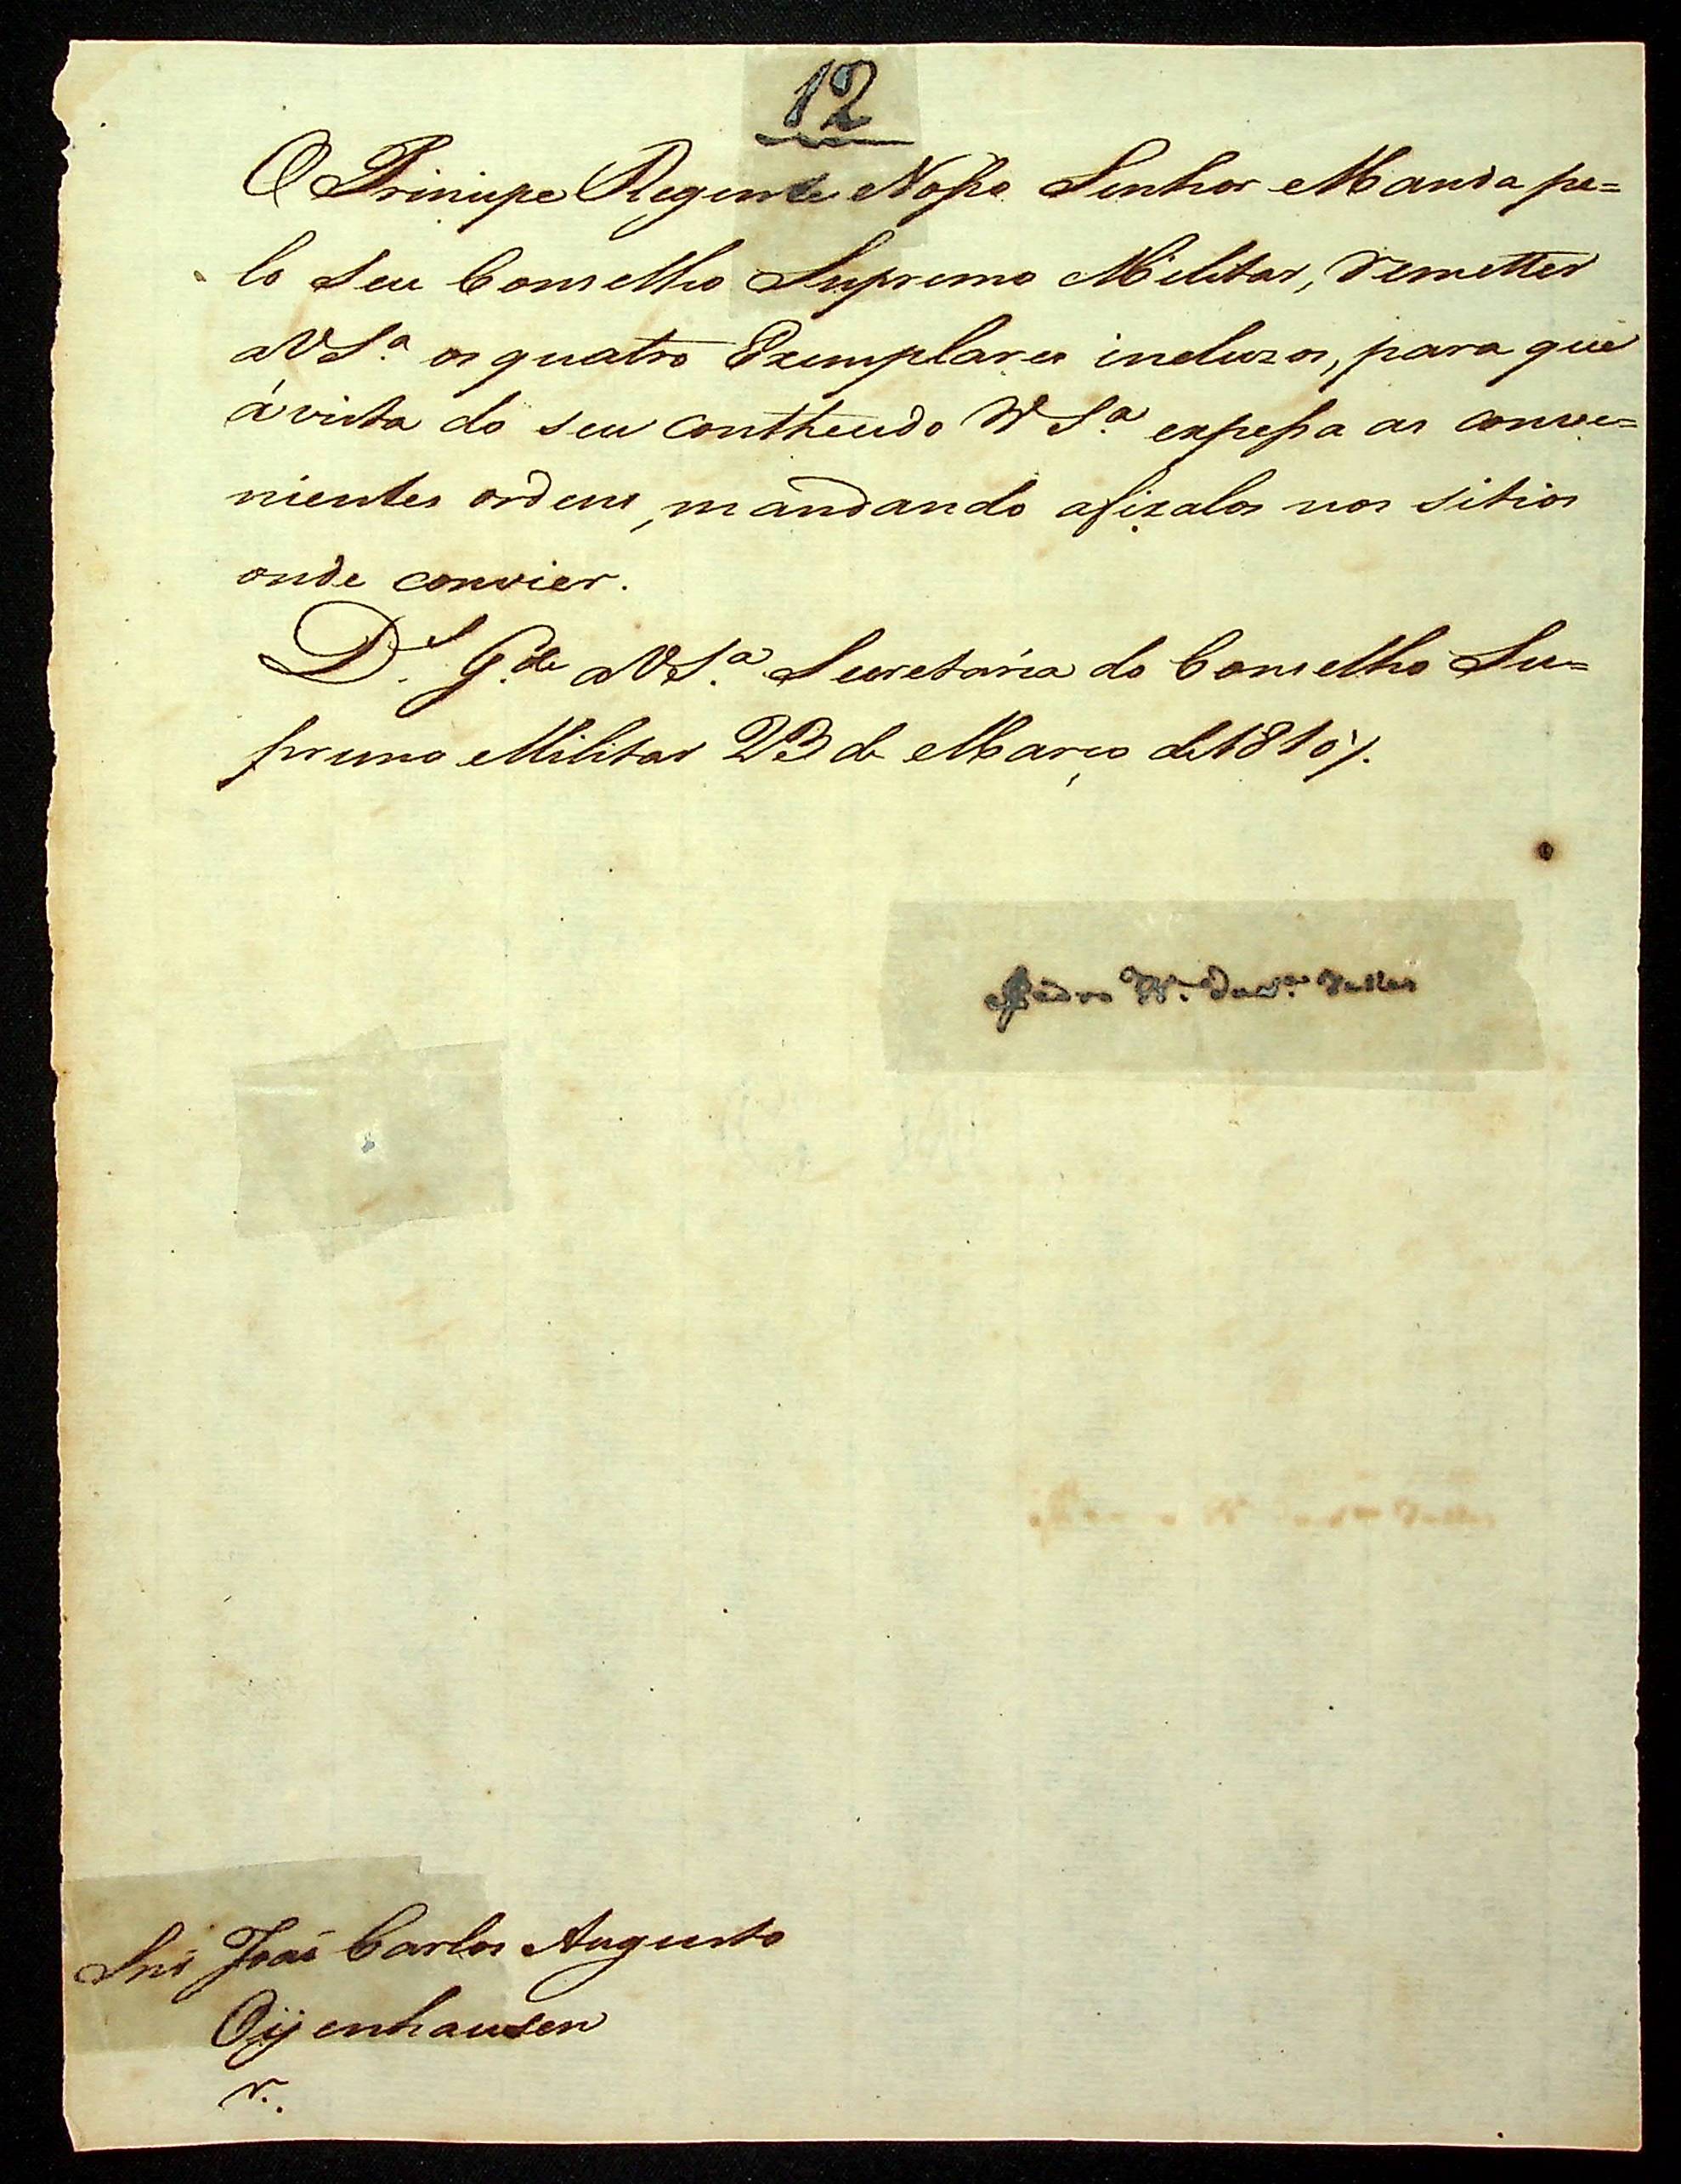 12
O Principe Regente Nosso Senhor Manda pe=
lo seu Conselho Supremo Militar, remetter
a V S.ª os quatro Exemplares incluzos, para que
á vista do seu conttheudo V S.ª expessa as conve=
nientes ordens, mandando afixalos nos sitios
onde convier.
D.s G.de a V S.ª Secretária do Conselho Su=
premo Militar 23 de Março de 1810/.
Pedro V.
Snr João Carlos Augusto
Oÿenhausen
r.